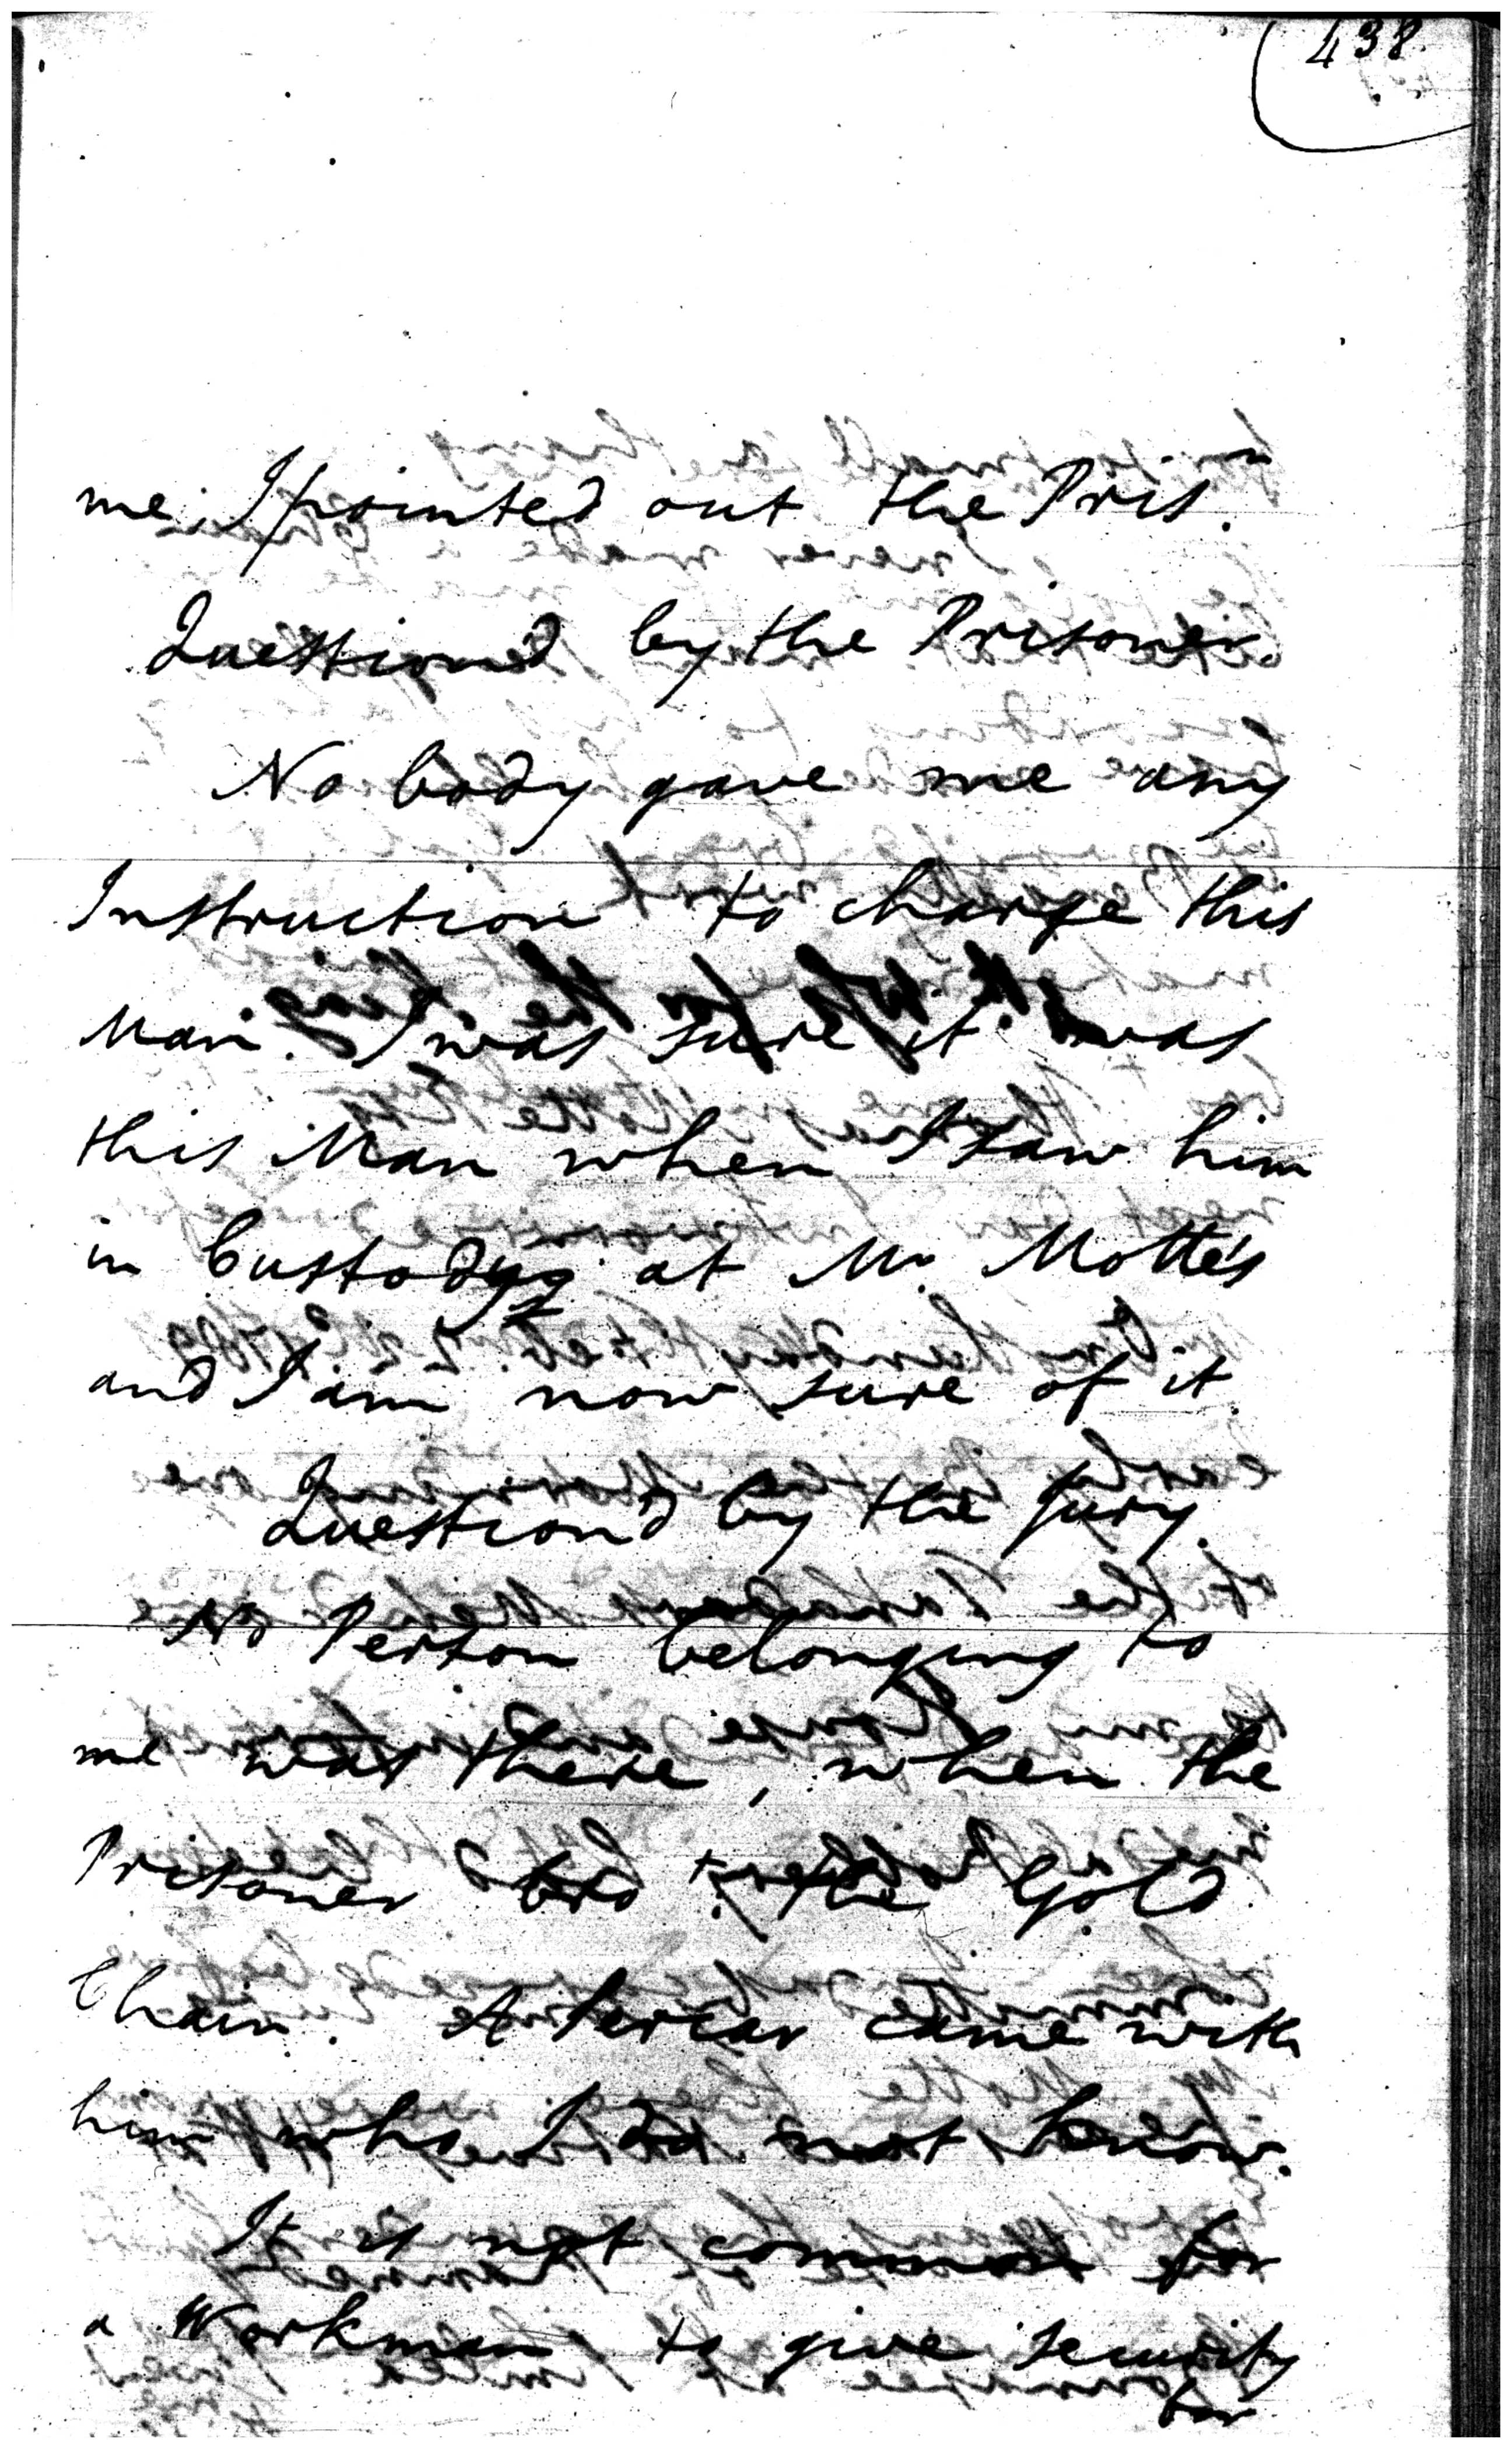 438.
me; I pointed out the Pris.n
Question'd by the Prisoner.
No body gave me any
Instruction to charge this
Man. I was sure it was
this Man when I saw him
in Custody at Mr. Motte's
and I am now sure of it.
Question'd by the Jury.
No Person belonging to
me was there, when the
Prisoner bro.t the Gold
Chain. A came with
him who I do not know.
It is not common for
a Workman to give security
for